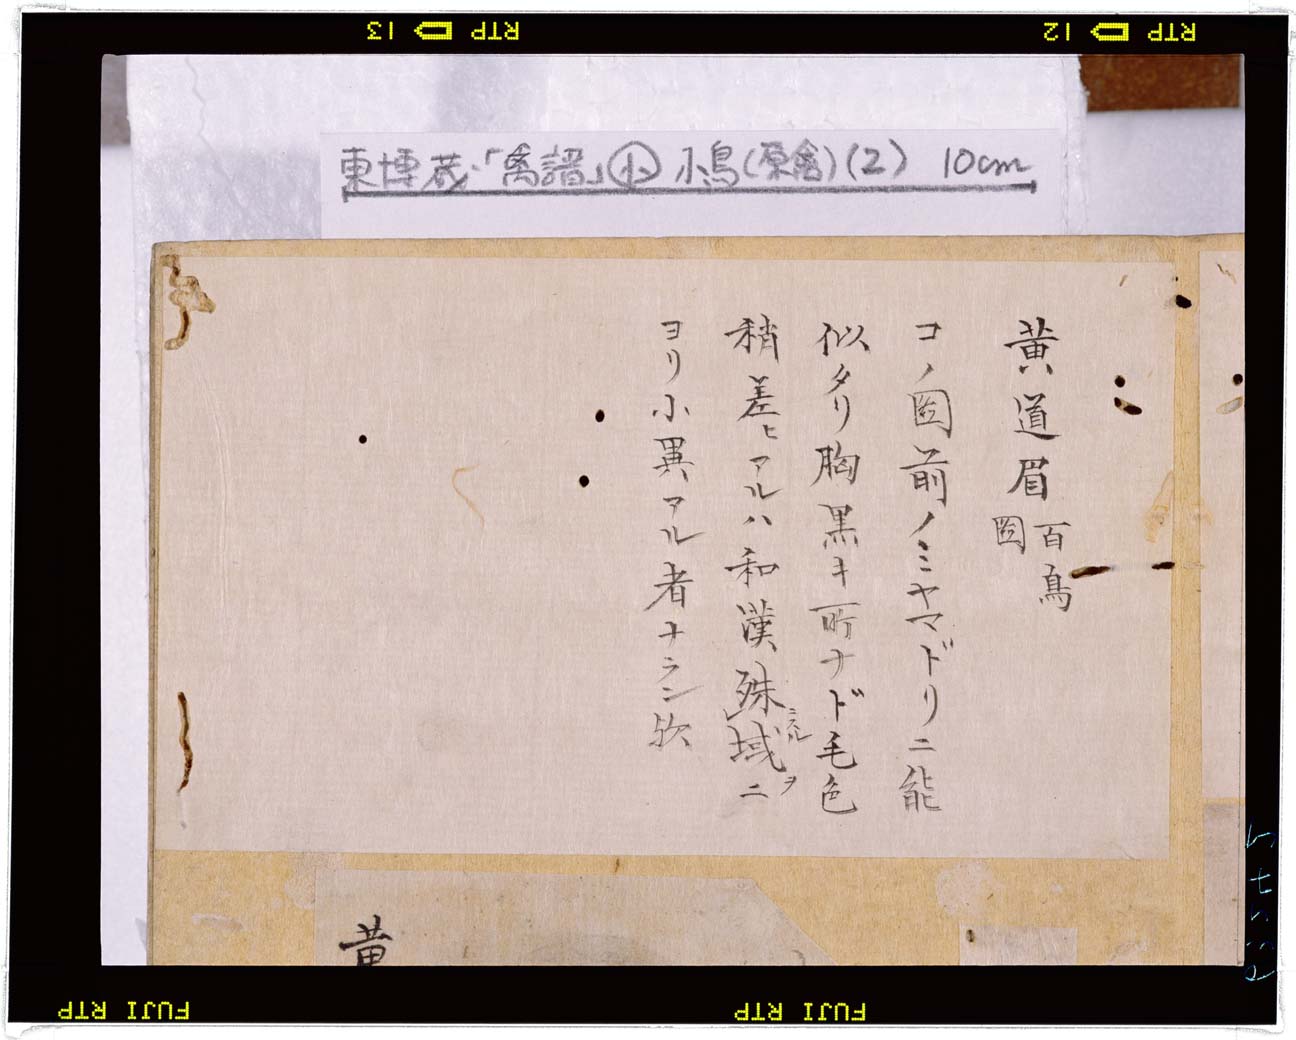 RTP 13
RTP 12
東博蔵・「禽譜」小 小鳥(原禽)(2) 10cm
黄道眉 百鳥圖
コノ圖前ノミヤマドリニ能
似タリ胸黒キ所ナド毛色
稍差ヒアルハ和漢殊域ニ
ヨリ小異アル者ナラン欤
黄
FUJI RTP
FUJI RTP